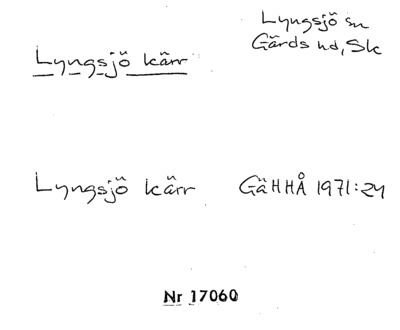 Lyngsjö kärr
Lyngsjö sn
Gärds hd, Sk
Lyngsjö kärr GäHHÅ 1971:24
Nr 17060